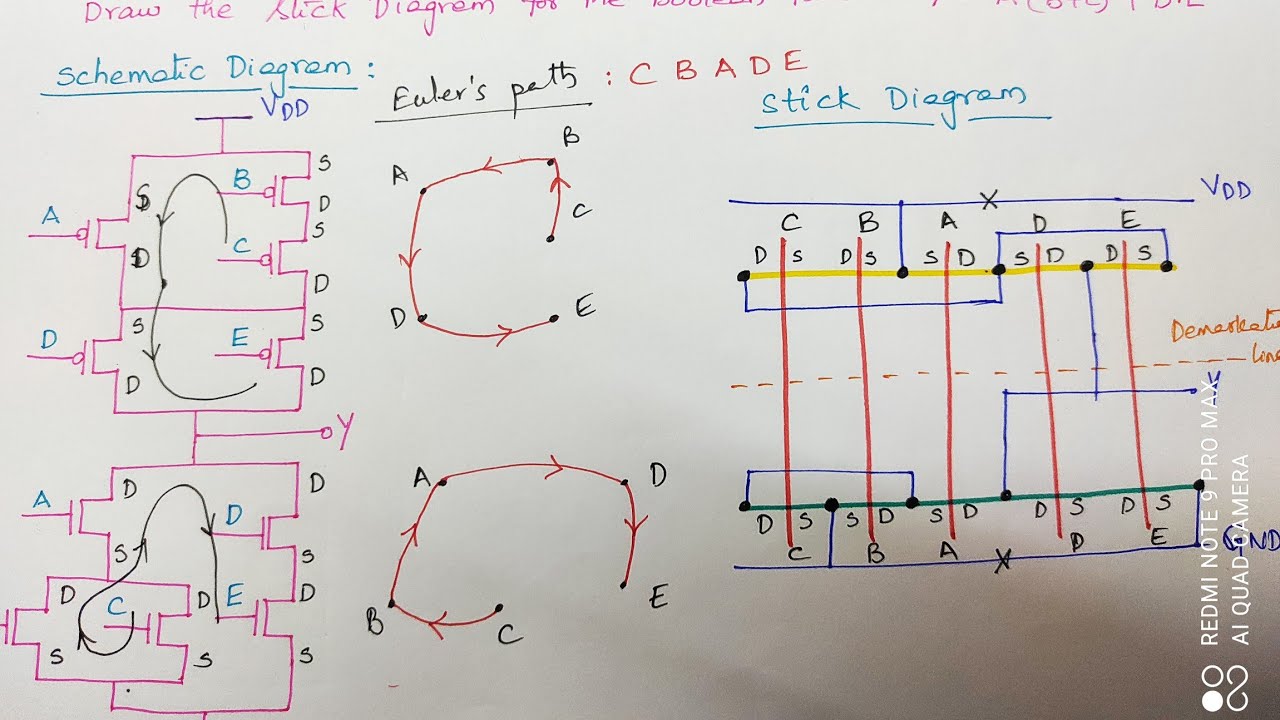 Draw the Stick Diagram for the Boolean
Schematic Diagram :
Euler's path : C B A D E
Stick Diagram
VDD
A
S
D
B
S
D
C
S
D
D
S
D
E
S
D
Y
A
D
S
D
D
S
D
S
C
D
S
E
D
S
B
A
C
D
E
A
D
B
C
E
VDD
C B A D E
D S D S S D S D D S
Demarkatio
line
Y
D S S D S D D S D S
C B A D E
GND
X
X
REDMI NOTE 9 PRO MAX
AI QUAD CAMERA